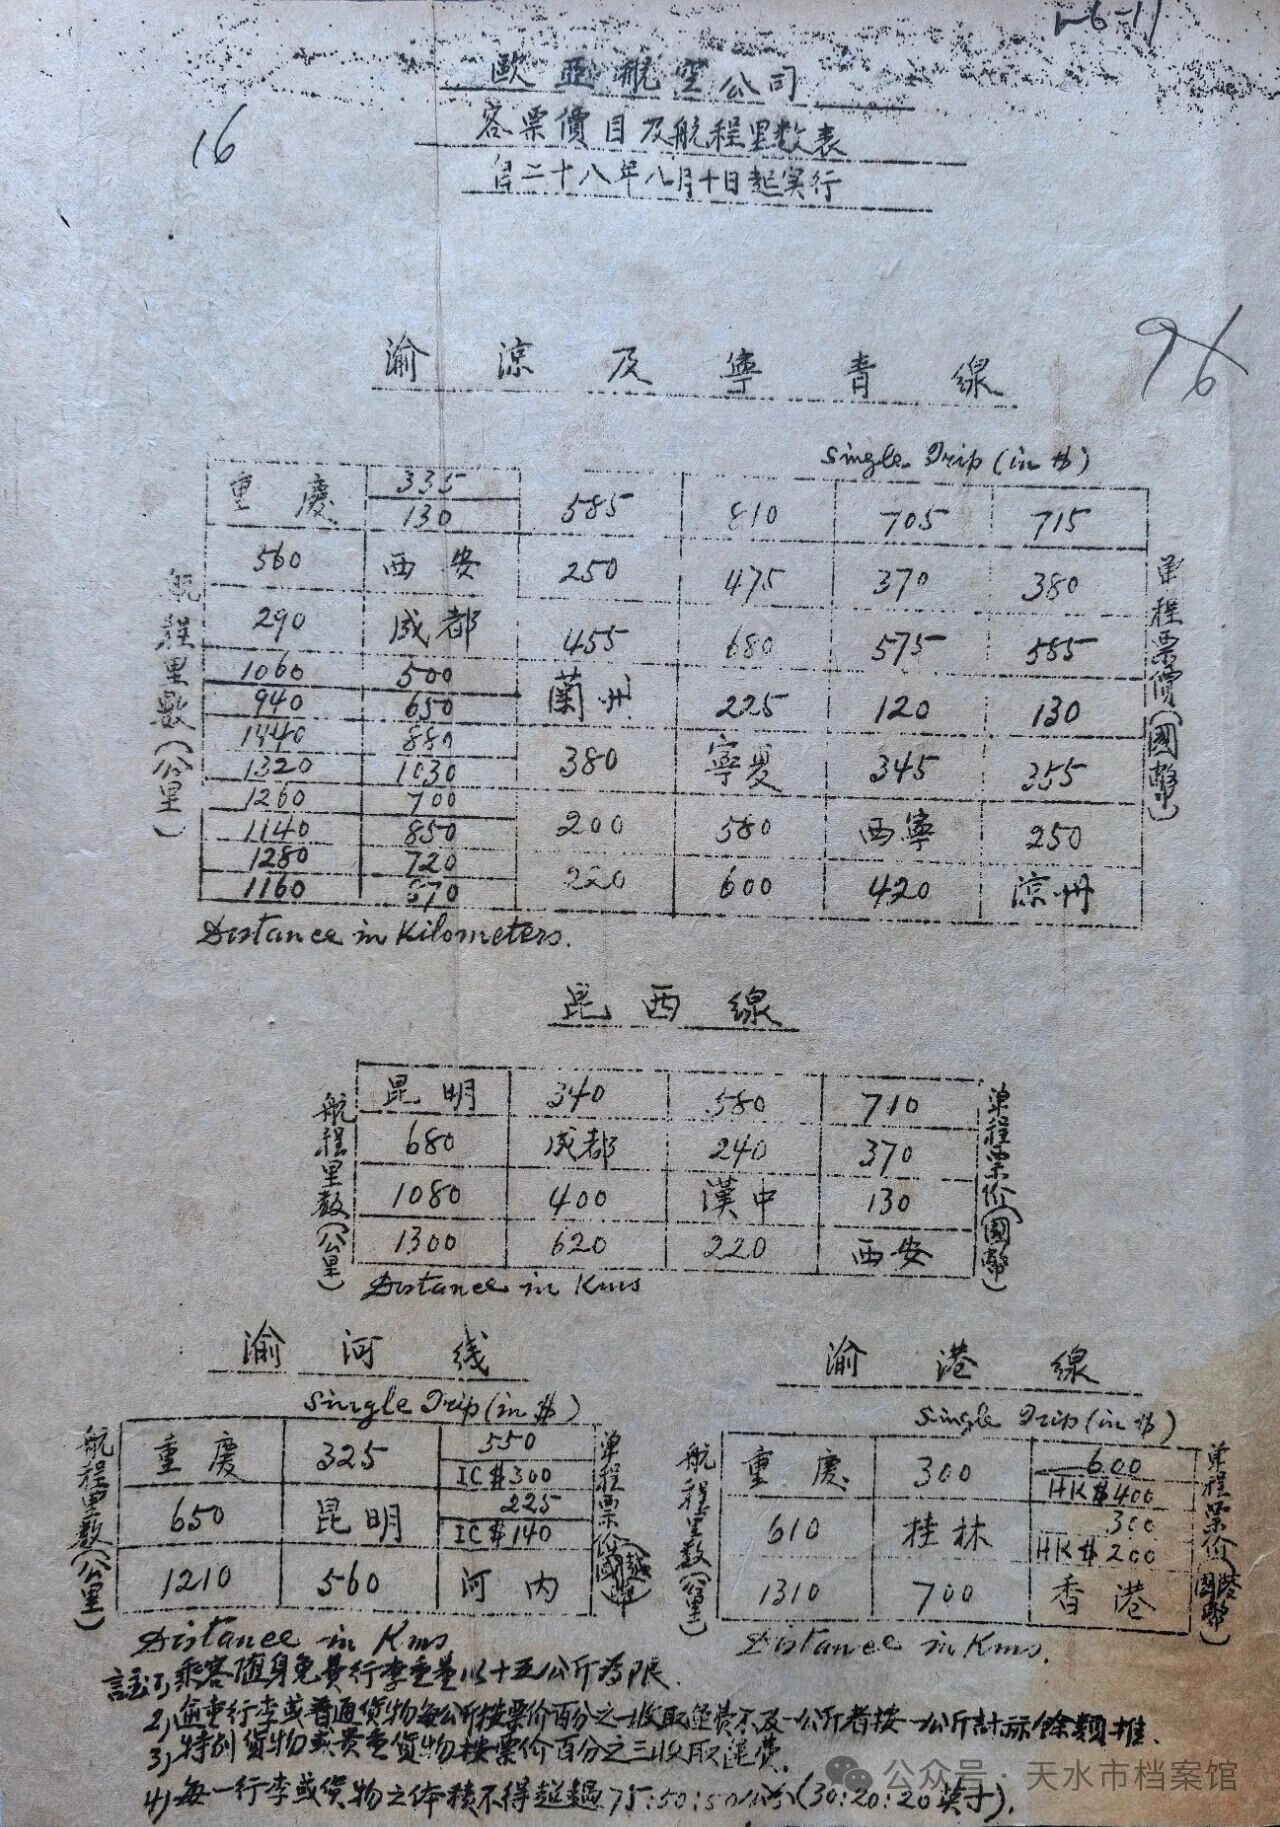 1-6-11
歐亞航空公司
客票價目及航程里數表
自二十八年八月十日起实行
16
96
渝涼及寧青線
Single Trip (in $)
航程里數(公里)
單程票價(國幣)
重慶 335 585 810 705 715
130
560 西安 250 475 370 380
290 成都 455 680 575 585
1060 500 蘭州 225 120 130
940 650
1440 880 380 寧夏 345 355
1320 1030
1260 700 200 580 西寧 250
1140 850
1280 720 220 600 420 涼州
1160 870
Distance in Kilometers.
昆西線
航程里數(公里)
單程票价(國幣)
昆明 340 580 710
680 成都 240 370
1080 400 漢中 130
1300 620 220 西安
Distance in Kms
渝河线
Single Trip (in $)
航程里數(公里)
單程票价(國越幣)
重慶 325 550
IC$300
650 昆明 225
IC$140
1210 560 河内
Distance in Kms.
渝港線
Single Trip (in $)
航程里數(公里)
單程票价(國港幣)
重慶 300 600
HK$400
610 桂林 300
HK$200
1310 700 香港
Distance in Kms.
註:1)乘客随身免費行李重量以十五公斤為限.
2)逾重行李或普通貨物每公斤按票价百分之一收取運费不及一公斤者按一公斤計标餘類推.
3)特別貨物或貴重貨物按票价百分之三收取運费.
4)每一行李或貨物之体積不得超過75:50:50公分(30:20:20英寸).
公众号·天水市档案馆